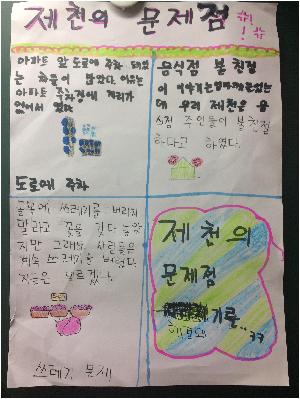 제천의 문제점
아파트 앞 도로에 주차 돼있
는 차들이 많았다. 이유는
아파트 주차장에 자리가
없어서 였다.
도로에 주차
음식점 불 친절
이 이야기는
는데 우리 제천은 음
식점 주인들이 불친절
하다고 하였다.
골목에 쓰레기를 버리지
말라고 꽃을 갖다 놓았
지만 그래도 사람들은
계속 쓰레기를 버렸다.
지금은 모르겠다.
쓰레기 문제
제천의
문제점
기른..ㅋㅋ